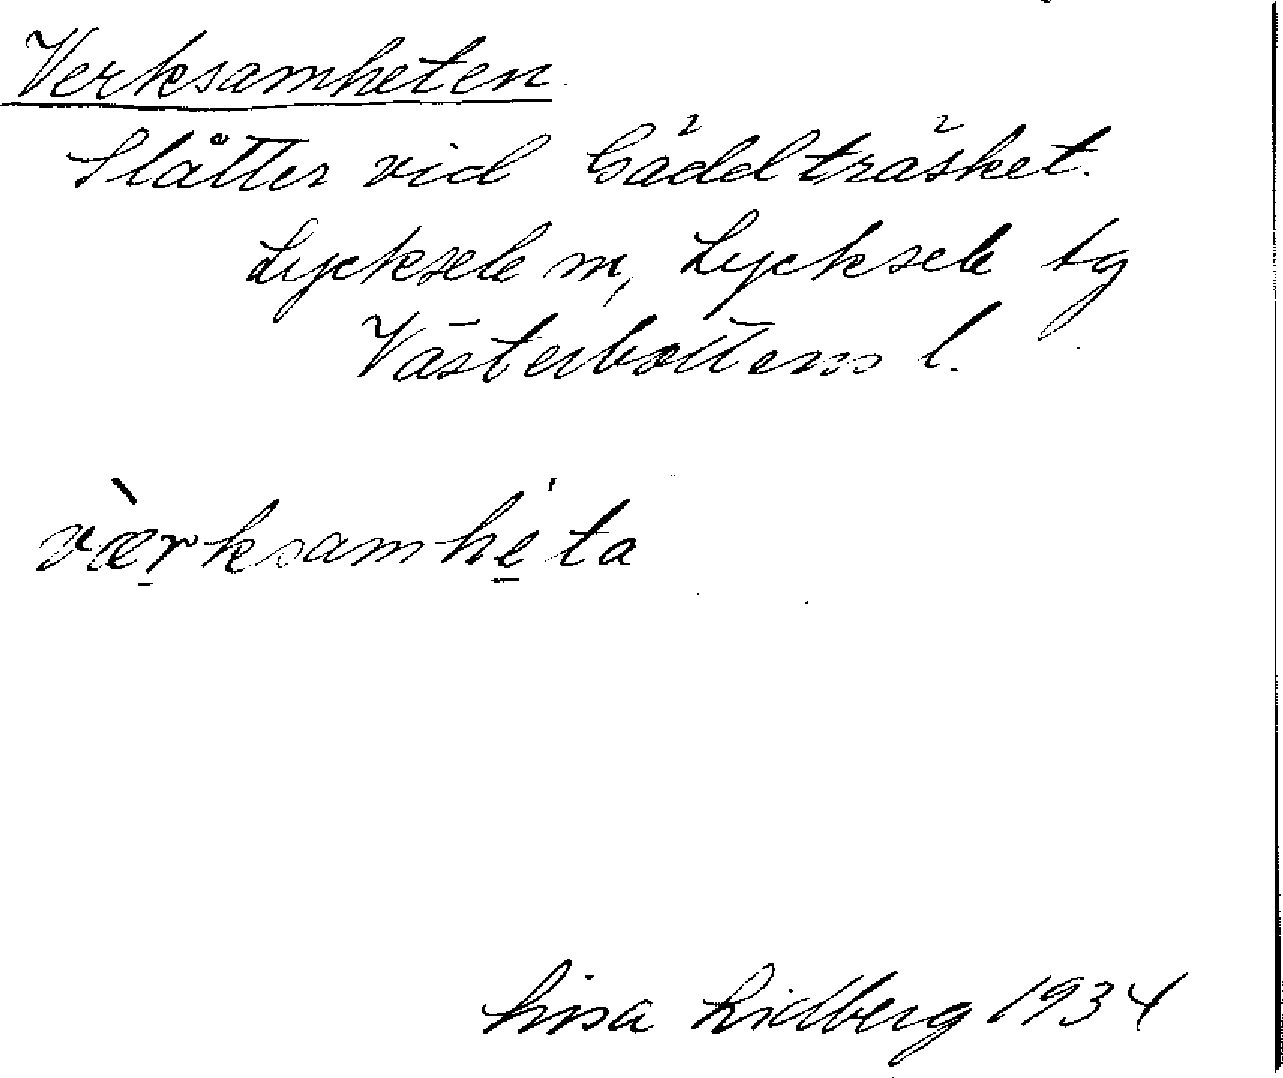 Verksamheten
Slåtter vid Gäddträsket.
Lycksele m, Lycksele tg
Västerbottens l.
vàrksamhé̱ta
Lisa Lidberg 1934